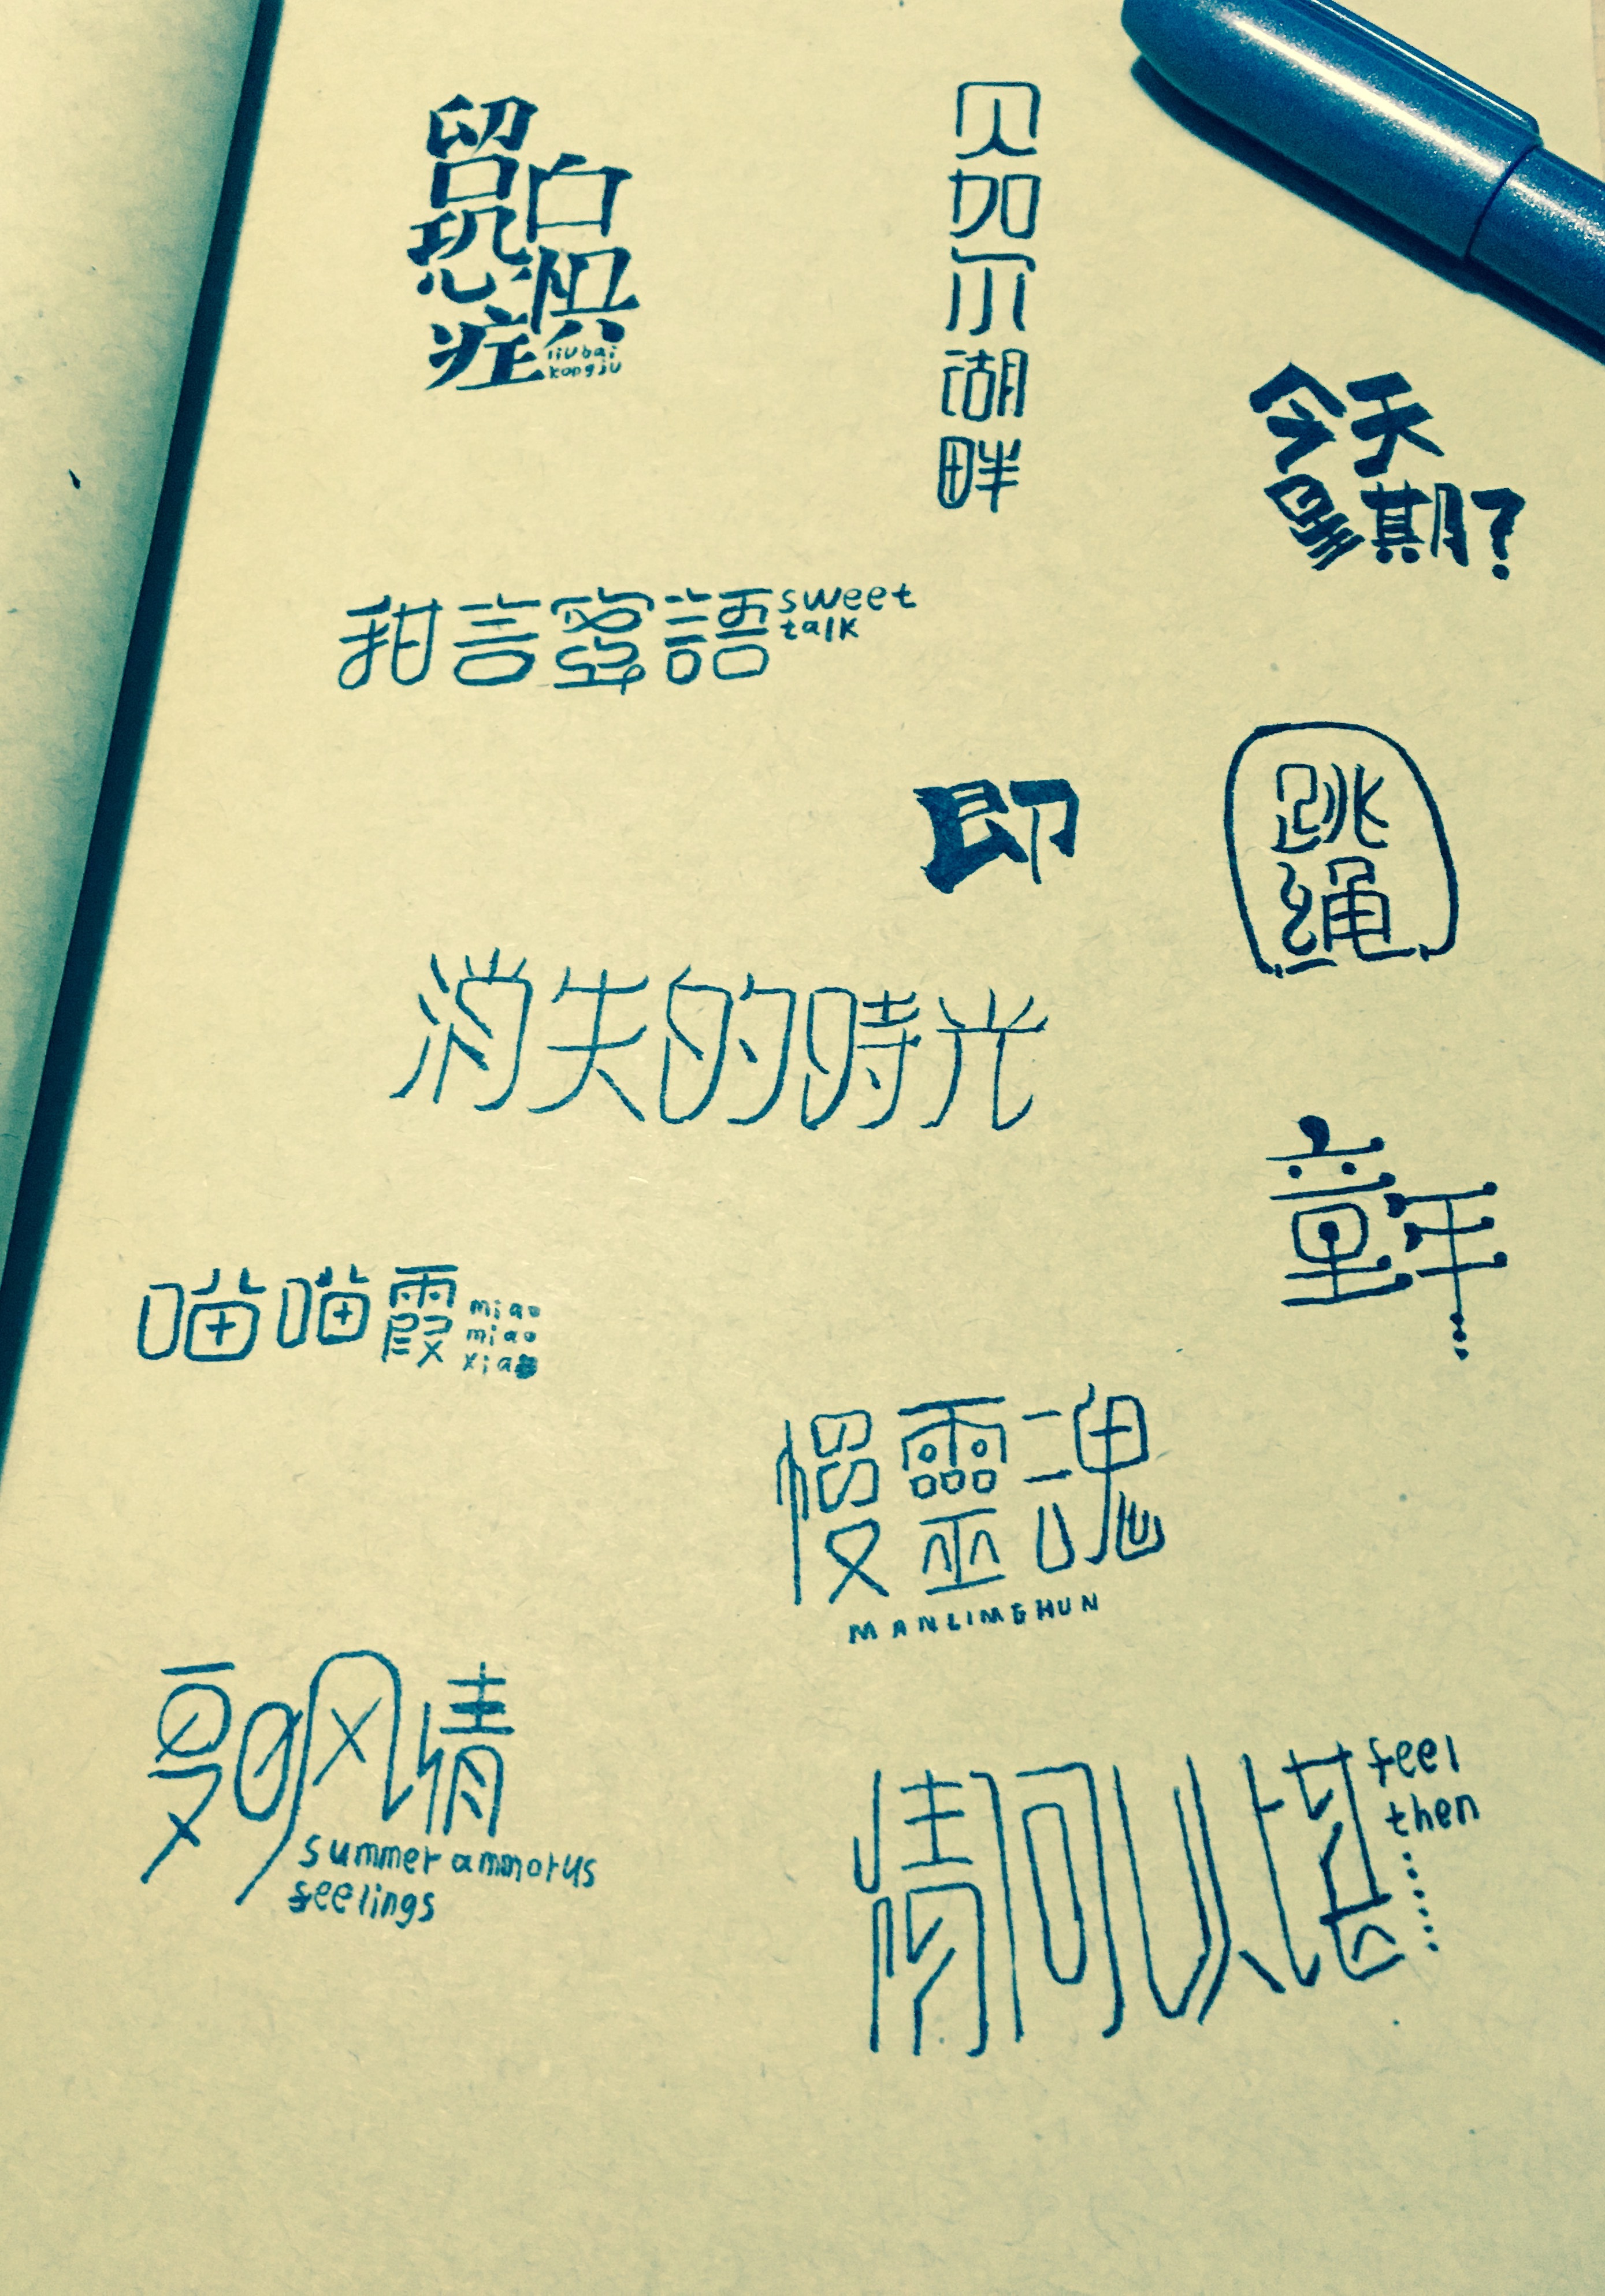 留白恐惧症
liu bai
kong ju
贝加尔湖畔
今天
星期?
甜言蜜語
sweet
talk
即
跳
绳
消失的時光
童年
喵喵霞
miao
miao
xia
慢靈魂
MANLINGHUN
夏日风情
summer ammorus
feelings
情何以堪
feel
then......